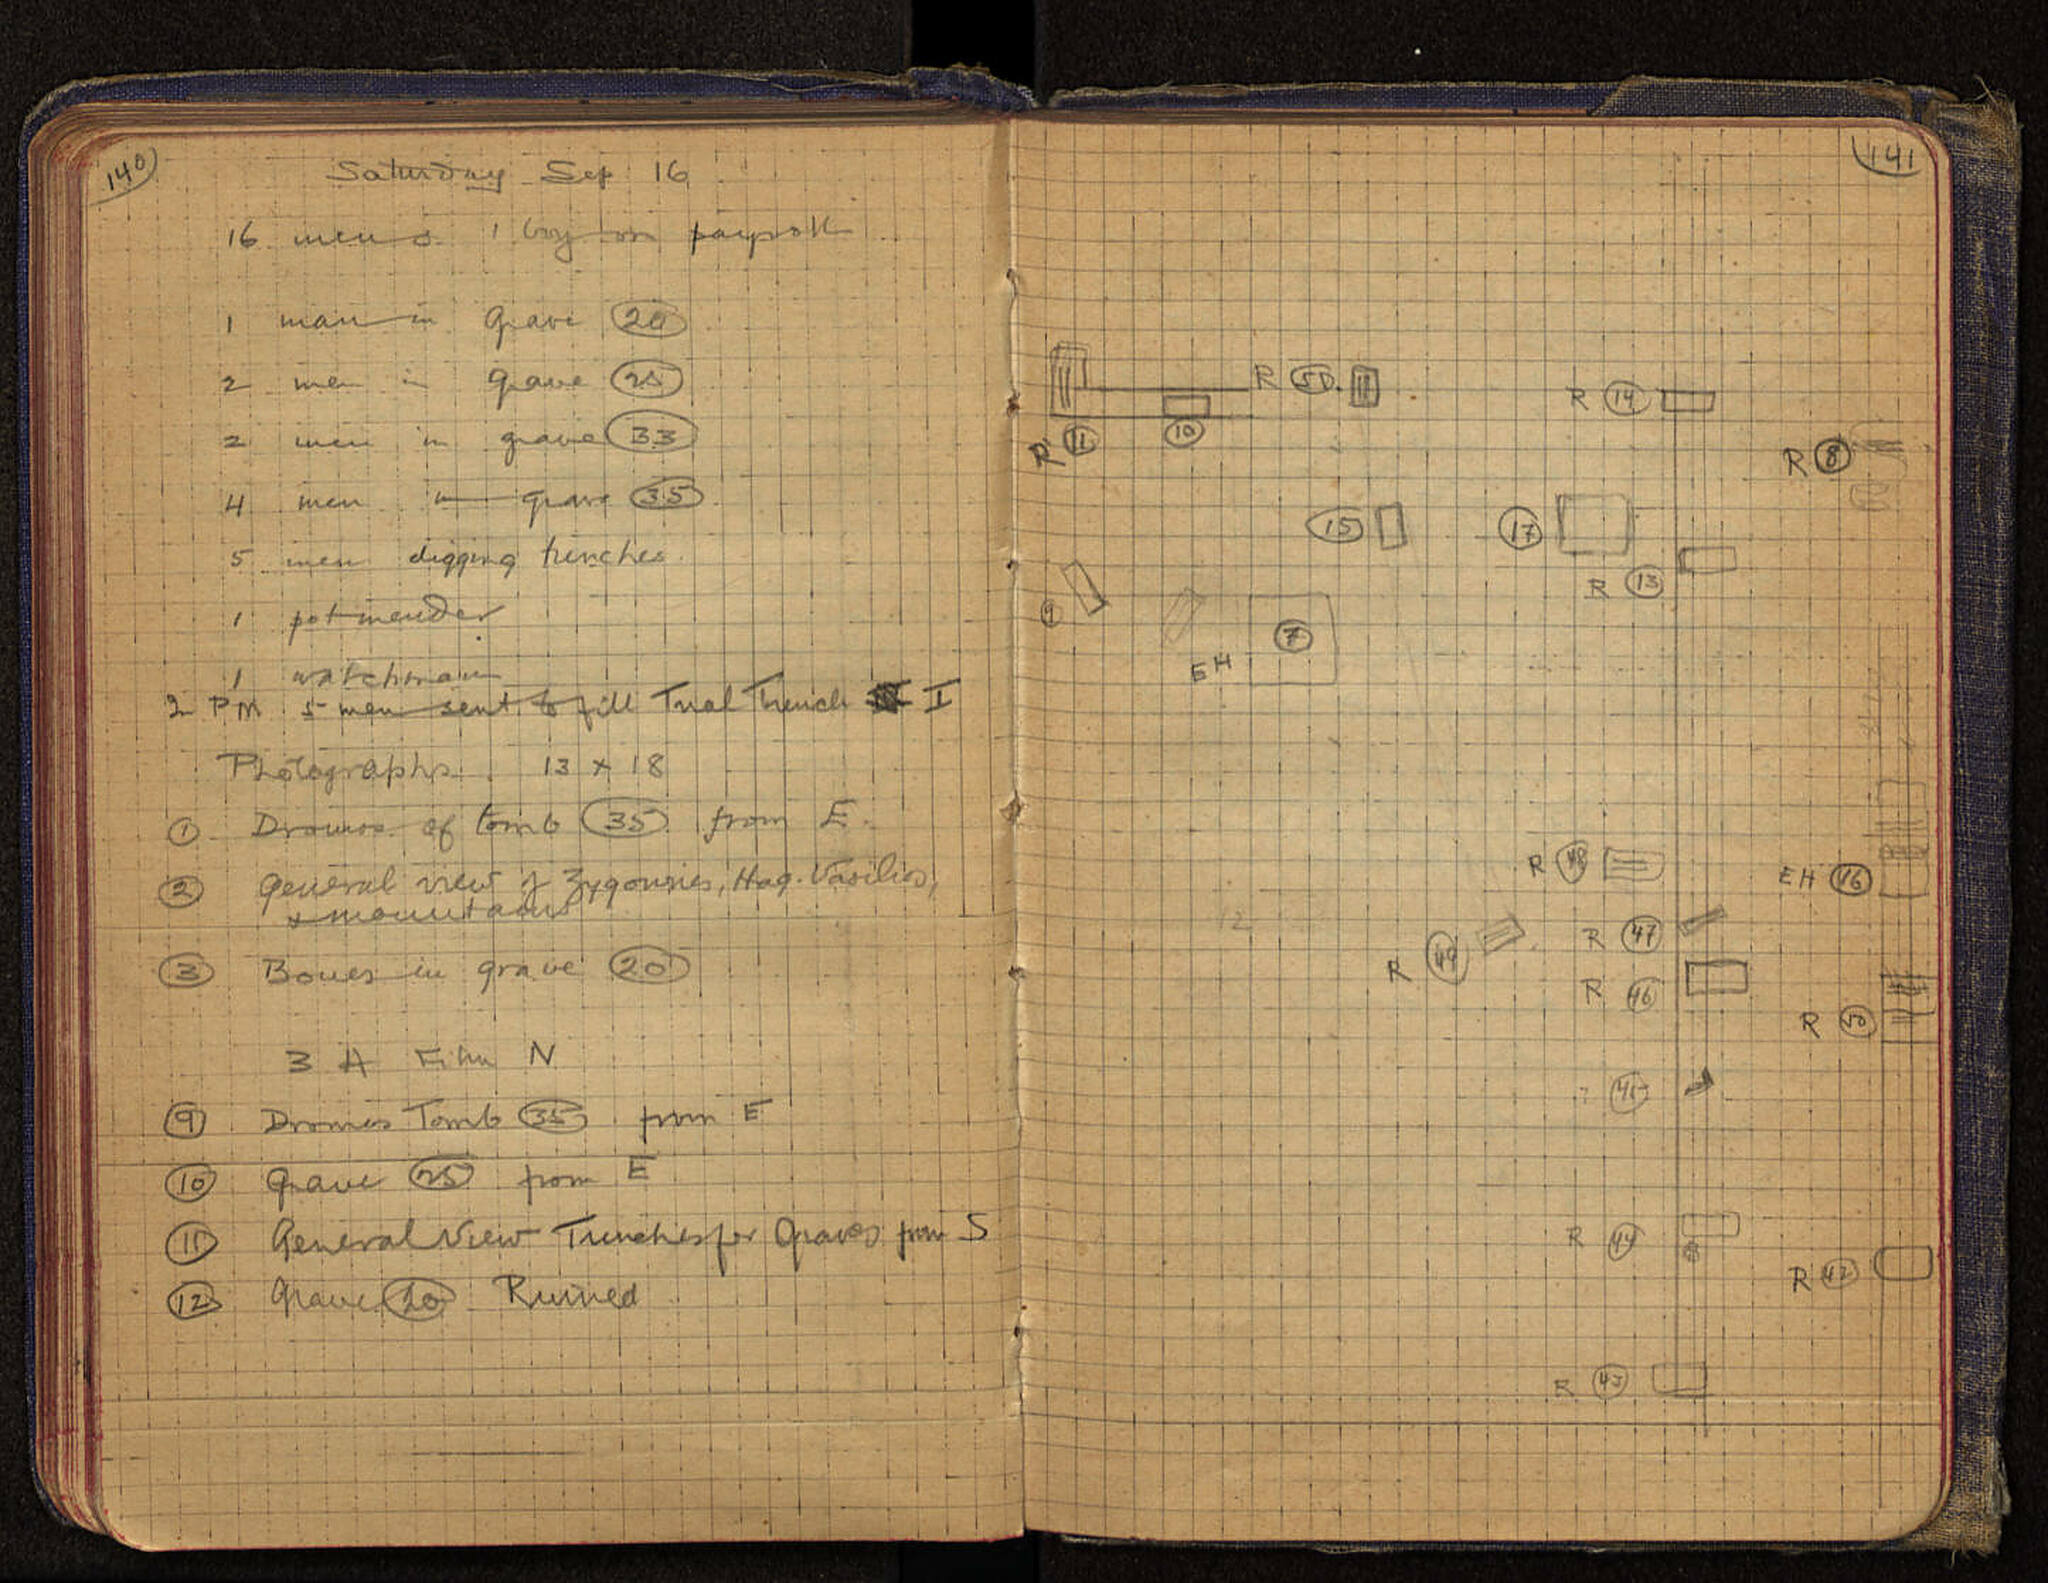 140
Saturday Sep 16
16 men & 1 boy on payroll
1 man in grave 20
2 men in grave 25
2 men in grave 33
4 men in grave 35
5 men digging trenches.
1 potmender
1 watchman
2 PM 5 men sent to fill Trial Trench I
Photographs. 13 x 18
1 Dromos of tomb 35 from E.
2 General view of Zygouries, Hag. Vasilios,
& mountains
3 Bones in grave 20
3 A Film N
9 Dromos Tomb 35 from E
10 Grave 25 from E
11 General View Trenches for Graves from S
12 Grave 20 Ruined
141
R 11
10
R
R 14
R 8
15
17
R 13
9
7
EH
R 48
EH
R 49
R 47
R 46
R 50
R 44
R 42
R 43